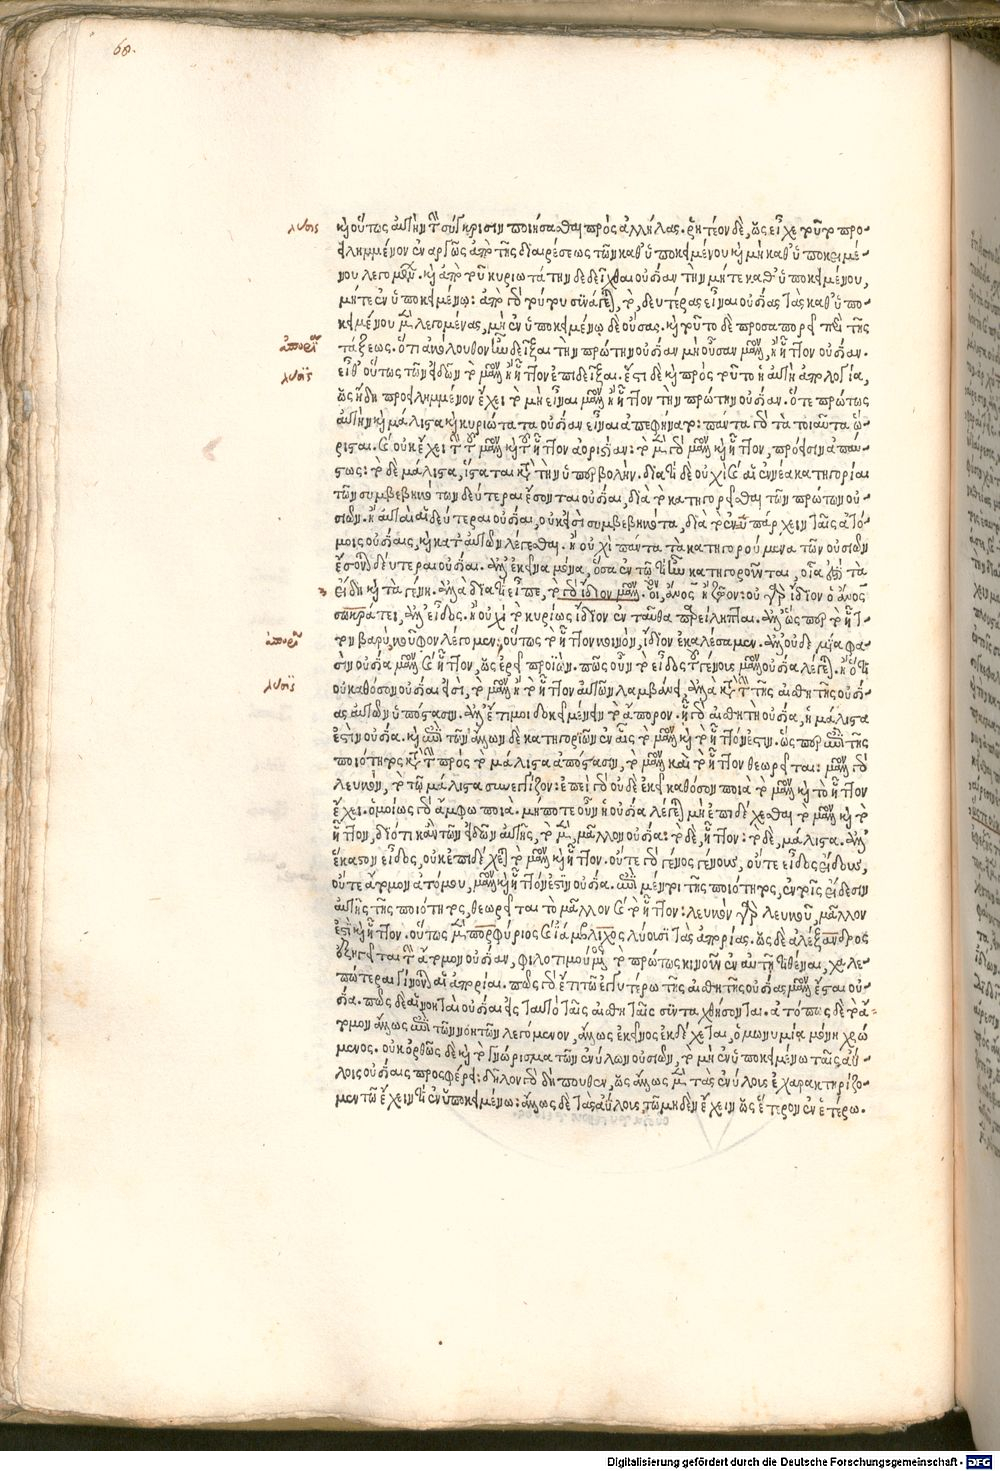 68.
λύσις
καὶ οὕτως αὐτὴν τὴν σύγκρισιν ποιήσασθαι πρὸς ἀλλήλας. ῥητέον δὲ, ὡς εἶχε τοῦτο προ-
μένου καὶ μὴ καθ' ὑποκειμέ-
νου λεγομένων. καὶ ἀπὸ τοῦ κυριωτάτην δεδεῖχθαι οὐσίαν τὴν μήτε καθ' ὑποκειμένου,
μήτε ἐν ὑποκειμένω: δευτέρας εἶναι οὐσίας τὰς καθ' ὑπο-
κειμένου μὲν λεγομένας, μὴ ἐν ὑποκειμένω δὲ οὔσας. καὶ τοῦτο δὲ προσαπορεῖ περὶ τῆς
ἀπορία
τάξεως. ὅτι ἀκόλουθον ἦν δεῖξαι τὴν πρώτην οὐσίαν μὴ οὖσαν μᾶλλον καὶ ἧττον οὐσίαν.
λύσις
εἶθ' οὕτως τῶν εἰδῶν τὸ μᾶλλον καὶ ἧττον ἐπιδεῖξαι. ἔστι δὲ καὶ πρὸς τοῦτο ἡ αὐτὴ ἀπολογία,
ὡς ἤδη προειλημμένον ἔχει τὸ μὴ εἶναι μᾶλλον καὶ ἧττον τὴν πρώτην οὐσίαν. ὅτε πρώτως
αὐτὴν καὶ μάλιστα καὶ κυριώτατα οὐσίαν εἶναι ἀπεφήνατο: πάντα γὰρ τὰ τοιαῦτα ὥ-
ρισται. καὶ οὐκ ἔχει τὴν τοῦ μᾶλλον καὶ τοῦ ἧττον ἀοριστίαν: τὸ μὲν γὰρ μᾶλλον καὶ ἧττον, πρόεισιν ἀπαύ-
στως: τὸ δὲ μάλιστα, ἵσταται κατὰ τὴν ὑπερβολήν. διατί δὲ οὐχὶ καὶ αἱ ἐννέα κατηγορίαι
τῶν συμβεβηκότων δεύτεραι ἔσονται οὐσίαι, διὰ τὸ κατηγορεῖσθαι τῶν πρώτων οὐ-
σιῶν. ἢ αὗται αἱ δεύτεραι οὐσίαι, οὐκ εἰσὶ συμβεβηκότα, διὰ τὸ ἐνυπάρχειν ταῖς ἀτό-
μοις οὐσίαις, καὶ κατ' αὐτῶν λέγεσθαι. ἢ οὐχὶ πάντα τὰ κατηγορούμενα τῶν οὐσιῶν
ἔσονται δεύτεραι οὐσίαι. ἀλλ' ἐκεῖνα μόνα, ὅσα ἐν τῶ τί ἦν κατηγοροῦνται, οἷα ἐστὶ τὰ
εἴδη καὶ τὰ γένη. ἀλλὰ διατί εἶπε, τὸ γὰρ ἴδιον μᾶλλον. οἷον, ἄνθρωπος ἢ ζῷον: οὐ γὰρ ἴδιον ὁ ἄνθρωπος
σωκράτει, ἀλλ' εἶδος. ἢ οὐχὶ τὸ κυρίως ἴδιον ἐνταῦθα παρείληπται. ἀλλ' ὥσπερ τὸ ἧτ-
ἀπορία
τον βαρὺ, κοῦφον λέγομεν: οὕτως τὸ ἧττον κοινὸν, ἴδιον ἐκαλέσαμεν. ἀλλ' οὐδεμία φα-
σὶν οὐσία μᾶλλον καὶ ἧττον, ὡς ἐρεῖ προϊών. πῶς οὖν τὸ εἶδος τοῦ γένους μᾶλλον οὐσία λέγεται. ἢ ὅτι
λύσις
οὐ καθόσον οὐσίαι εἰσὶ, τὸ μᾶλλον καὶ τὸ ἧττον αὐτῶν λαμβάνει, ἀλλὰ κατὰ τὴν τῆς αἰσθητῆς οὐσί-
ας αὐτῶν ὑπόστασιν. ἀλλ' ἔτι μοι δοκεῖ μένειν τὸ ἄπορον. ἡ γὰρ αἰσθητὴ οὐσία, ἡ μάλιστα
ἐστὶν οὐσία. καὶ ἐπὶ τῶν ἄλλων δὲ κατηγοριῶν ἐν αἷς τὸ μᾶλλον καὶ τὸ ἧττόν ἐστιν. ὥσπερ ἐπὶ τῆς
ποιότητος κατὰ τὴν πρὸς τὸ μάλιστα ἀπόστασιν, τὸ μᾶλλον καὶ τὸ ἧττον θεωρεῖται: μᾶλλον γὰρ
λευκὸν, τὸ τῶ μάλιστα συνεγγίζον: ἐπεὶ γὰρ οὐδὲ ἐκεῖ καθόσον ποιὰ τὸ μᾶλλον καὶ τὸ ἧττον
ἔχει. ὁμοίως γὰρ ἄμφω ποιά. μήποτε οὖν ἡ οὐσία λέγεται μὴ ἐπιδέχεσθαι τὸ μᾶλλον καὶ τὸ
ἧττον, διότι κἂν τῶν εἰδῶν αὐτῆς, τὸ μὲν, μᾶλλον οὐσία: τὸ δὲ, ἧττον: τὸ δὲ, μάλιστα. ἀλλ'
ἕκαστον εἶδος, οὐκ ἐπιδέχεται τὸ μᾶλλον καὶ ἧττον. οὔτε γὰρ γένος γένους, οὔτε εἶδος εἴδους,
οὔτε ἄτομον ἀτόμου, μᾶλλον καὶ ἧττόν ἐστιν οὐσία. ἐπὶ μέντοι τῆς ποιότητος, ἐν τοῖς εἴδεσιν
αὐτῆς τῆς ποιότητος, θεωρεῖται τὸ μᾶλλον καὶ τὸ ἧττον: λευκὸν γὰρ λευκοῦ, μᾶλλον
ἐστὶ καὶ ἧττον. οὕτως μὲν πορφύριος καὶ ἰάμβλιχος λύουσι τὰς ἀπορίας. ὡς δὲ ἀλέξανδρος
ἐξηγεῖται τὴν ἄτομον οὐσίαν, φιλοτιμούμενος τὸ πρώτως κινοῦν ἐν αὐτῇ τιθέναι, χαλε-
πώτεραι γίνονται αἱ ἀπορίαι. πῶς γὰρ ἔτι τῶ ἐγγυτέρω τῆς αἰσθητῆς οὐσίας μᾶλλον ἔσται οὐ-
σία. πῶς δὲ αἱ νοηταὶ οὐσίαι εἰς ταυτὸ ταῖς αἰσθηταῖς συνταχθήσονται. ἄτοπως δὲ τὸ ἄ-
τομον ἄλλως ἐπὶ τῶν νοητῶν λεγόμενον, ἄλλως ἐκεῖνος ἐκδέχεται, ὁμωνυμία μόνη χρώ-
μενος. οὐκ ὀρθῶς δὲ καὶ τὸ γνώρισμα τῶν ἐνύλων οὐσιῶν, τὸ μὴ ἐν ὑποκειμένω ταῖς ἀΰ-
λοις οὐσίαις προσφέρει: δῆλον γὰρ δήπουθεν, ὡς ἄλλως μὲν τὰς ἐνύλους ἐχαρακτήριζο-
μεν τῶ ἔχειν τι ἐν ὑποκειμένω: ἄλλως δὲ τὰς ἀΰλους, τῶ μηδὲν ἔχειν ὡς ἕτερον ἐν ἑτέρω.
Digitalisierung gefördert durch die Deutsche Forschungsgemeinschaft - DFG